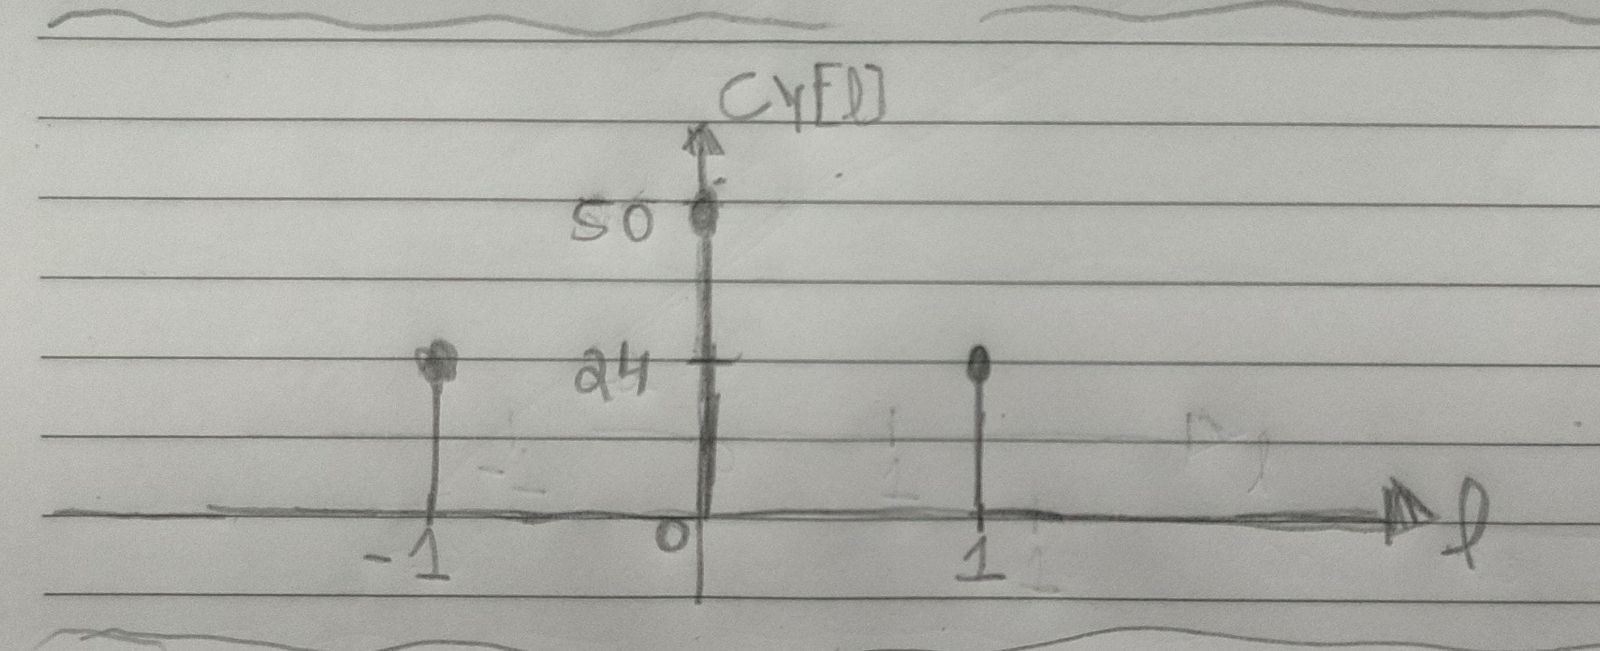 Cy[l]
50
24
-1 0 1 l